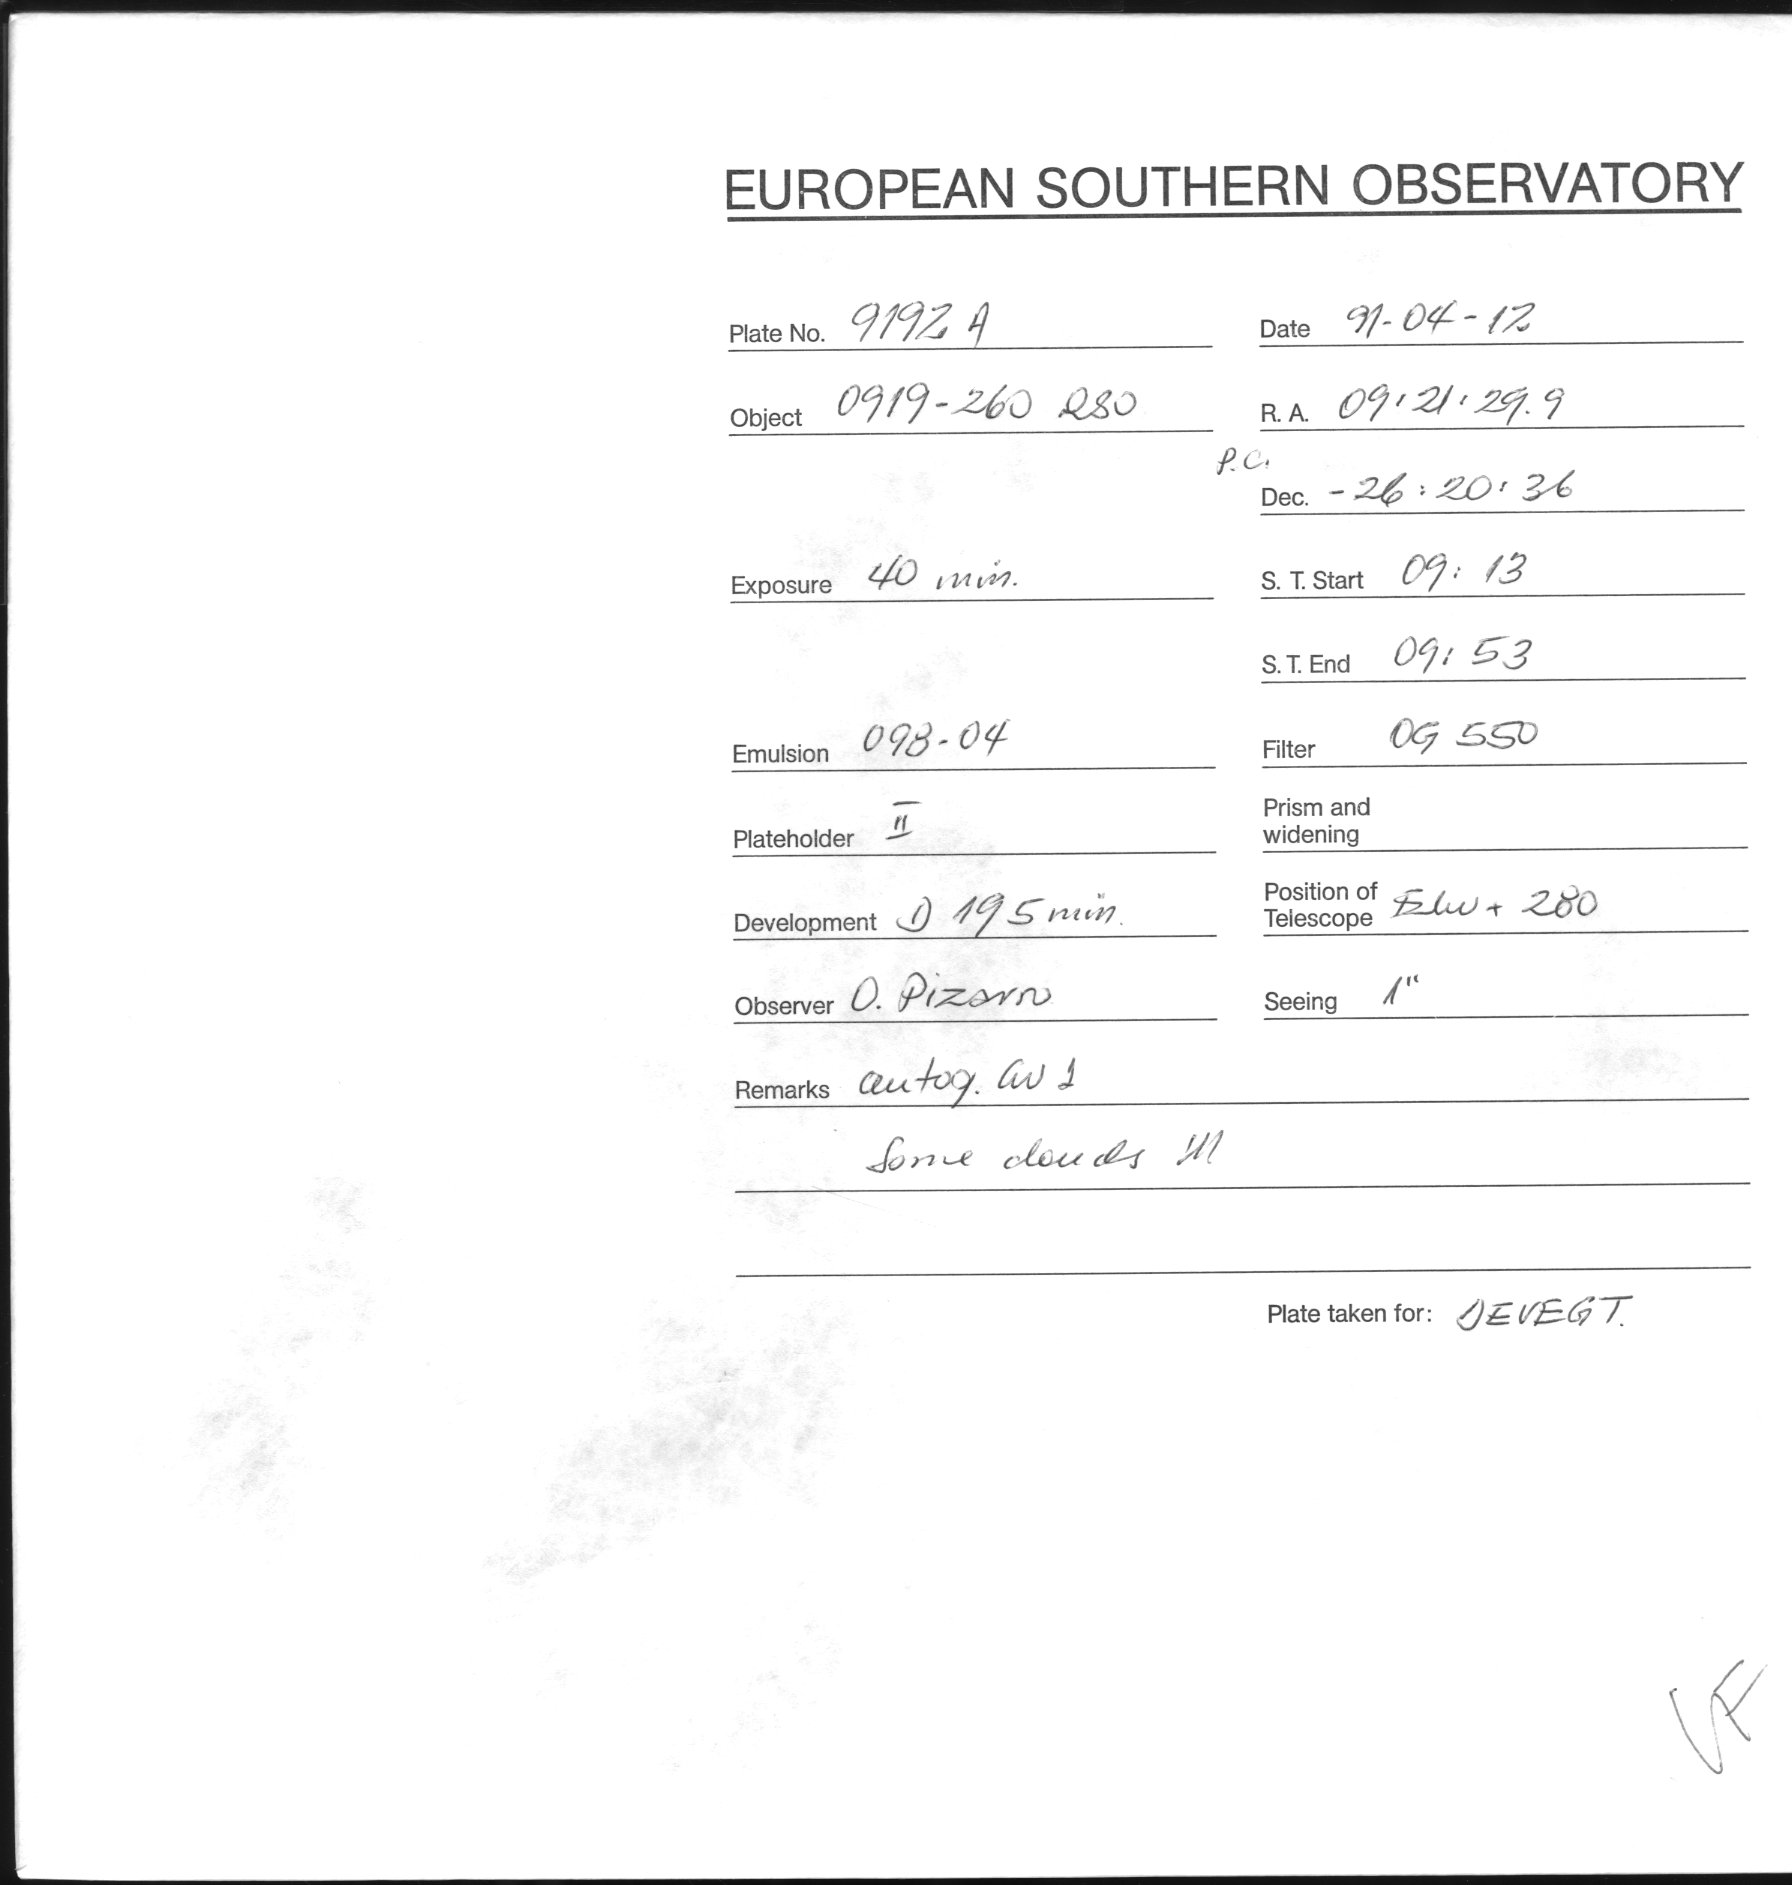 EUROPEAN SOUTHERN OBSERVATORY
Plate No. 9192 A Date 91-04-12
Object 0919-260 QSO R. A. 09:21:29.9
P.C.
Dec. -26:20:36
Exposure 40 min. S. T. Start 09: 13
S. T. End 09: 53
Emulsion 098-04 Filter OG 550
Plateholder II Prism and
widening
Development D 19 5 min. Position of
Telescope + 280
Observer O. Pizarro Seeing 1"
Remarks autog.
Some clouds !!!
Plate taken for: DEVEGT.
VF